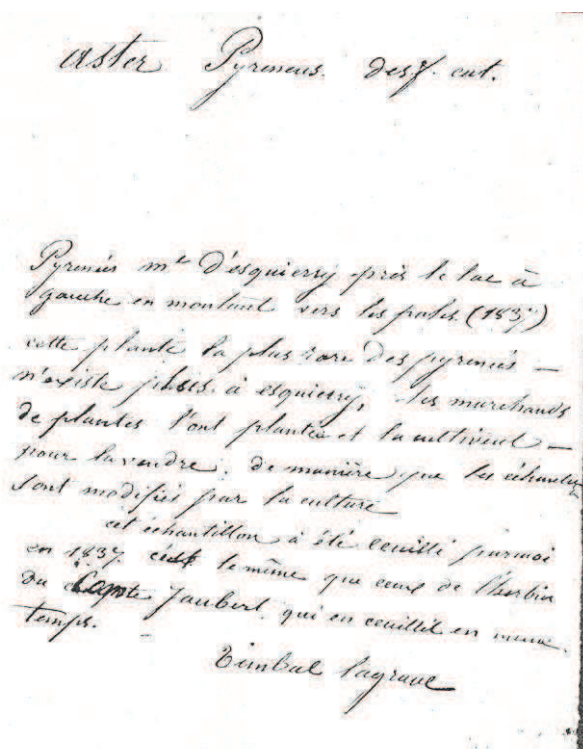 Aster Pyreneus. Desf. cat.
Pyrénées mt. D'esquierry près le lac à
gauche en montant vers les (1837)
cette plante la plus rare Des pyrénées —
n'existe plus à esquierry, les marchands
de plantes l'ont plantée et la cultivent —
pour la vendre. de manière que les échantillon
sont modifiés par la culture
cet échantillon a été ceuilli par moi
en 1837. le même que ceux de l'herbier
du Jaubert qui en ceuillit en meme
temps. —
Timbal Lagrave